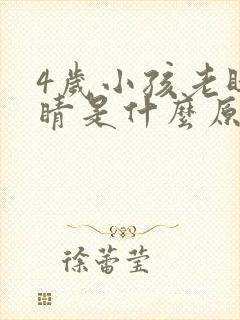 4歲小孩老眨
睛是什麼原
徐蕾莹